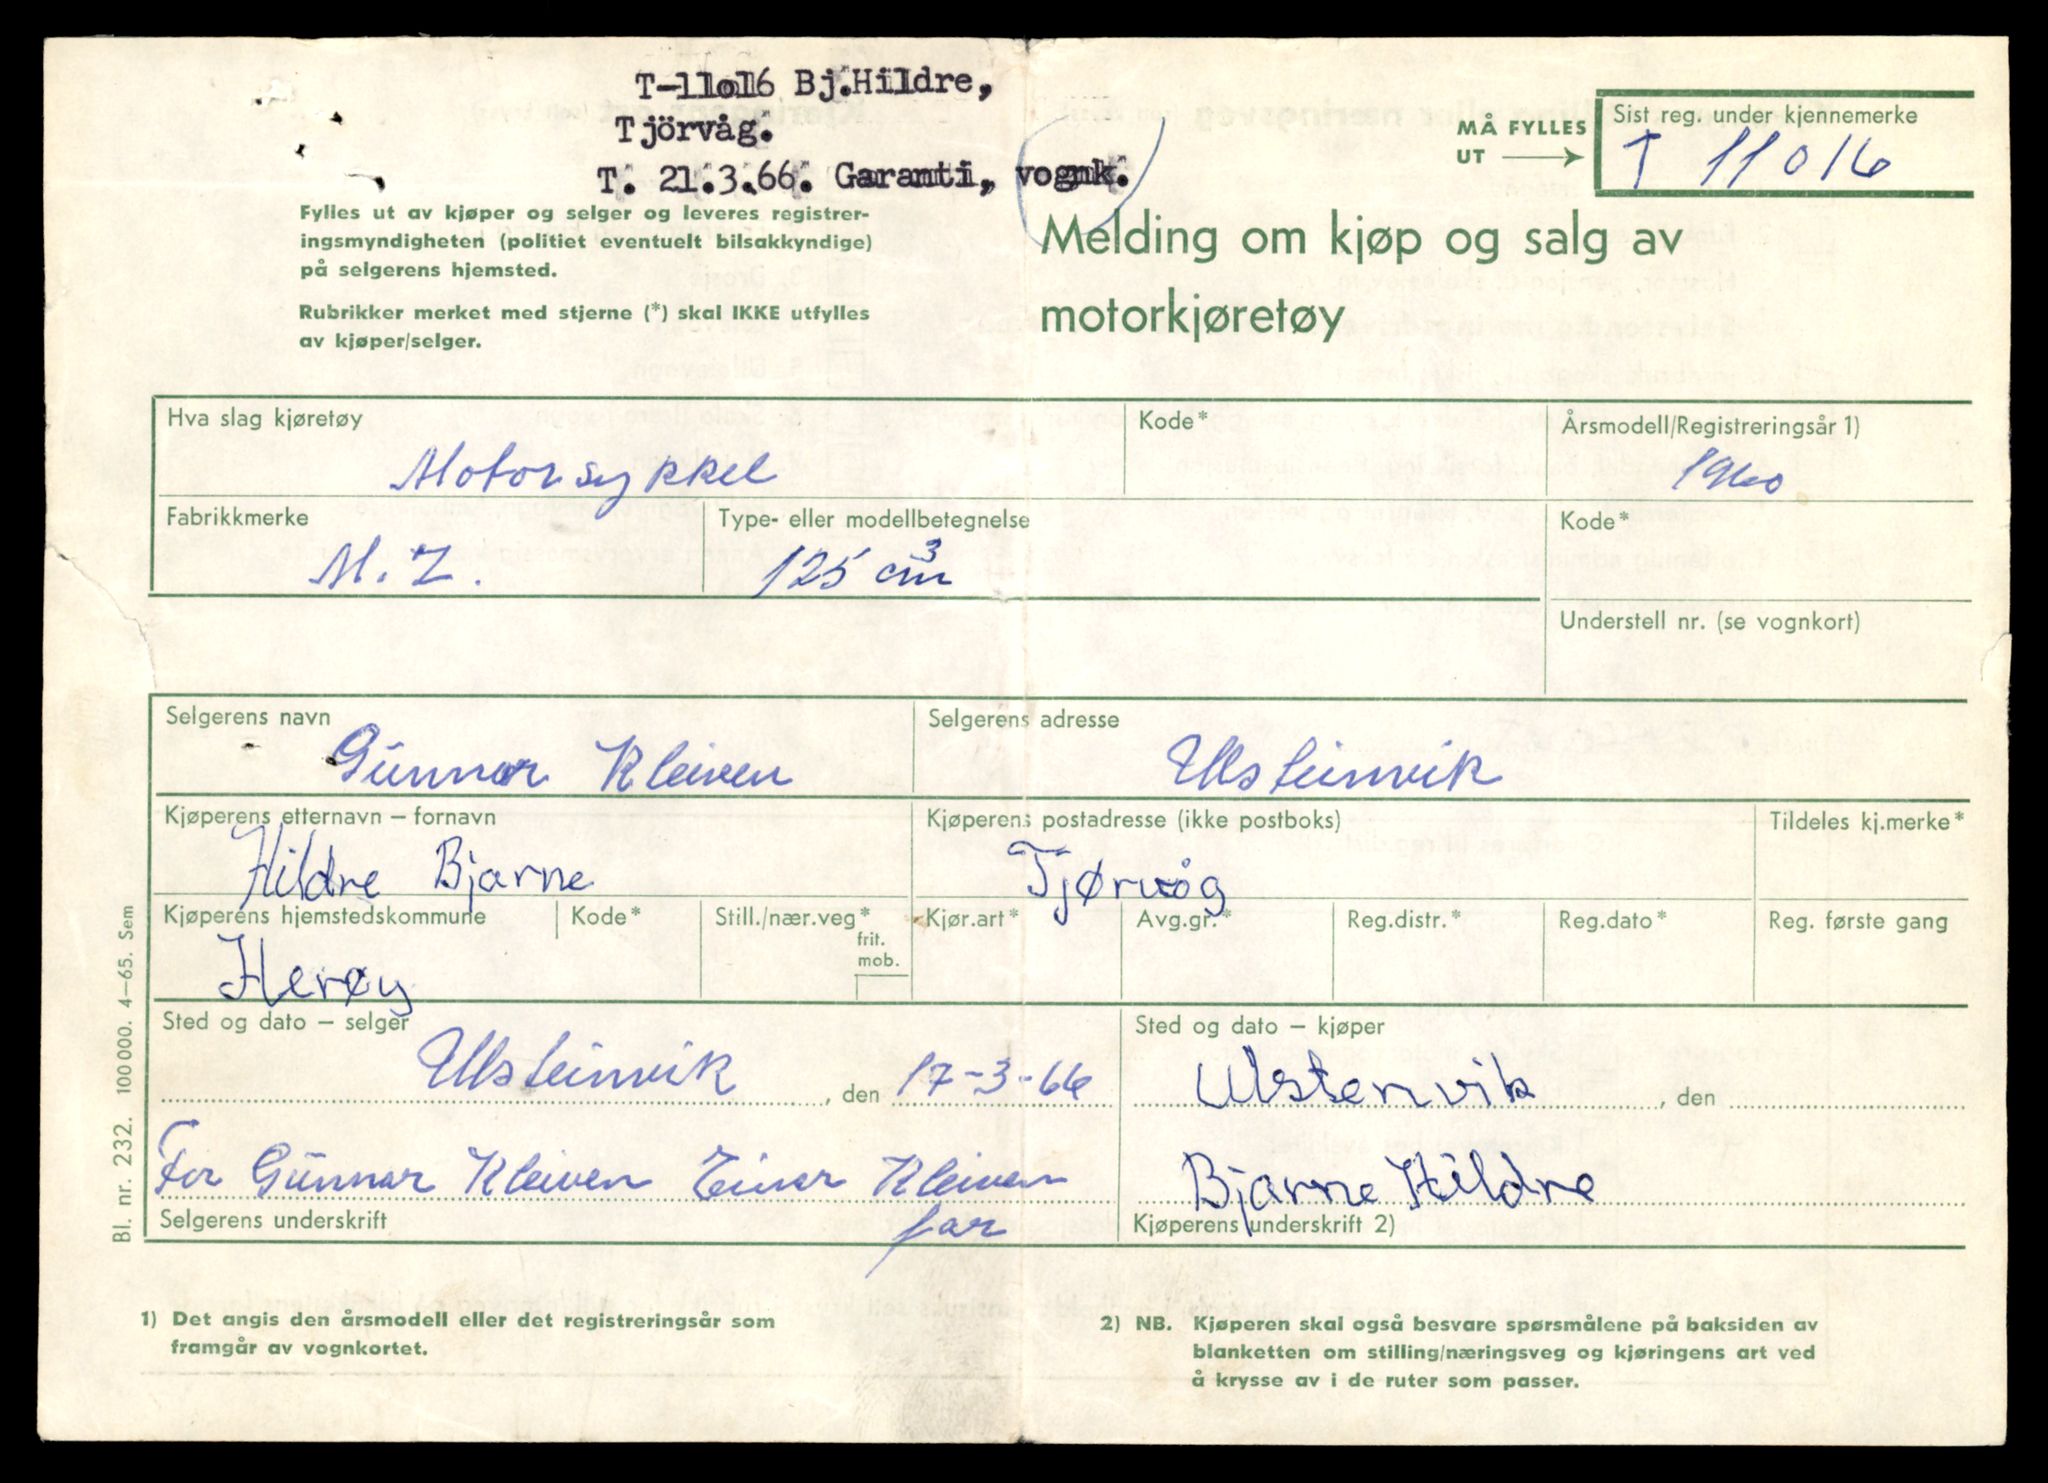 T-11016 Bj.Hildre,
Tjörvåg.
T. 21.3.66. Garanti, vognk.
MÅ FYLLES UT
Sist reg. under kjennemerke
T 11016
Fylles ut av kjøper og selger og leveres registrer-
ingsmyndigheten (politiet eventuelt bilsakkyndige)
på selgerens hjemsted.
Rubrikker merket med stjerne (*) skal IKKE utfylles
av kjøper/selger.
Melding om kjøp og salg av
motorkjøretøy
Hva slag kjøretøy
Motorsykkel
Kode*
Årsmodell/Registreringsår 1)
1960
Fabrikkmerke
M.Z.
Type- eller modellbetegnelse
125 cm3
Kode*
Understell nr. (se vognkort)
Selgerens navn
Gunnar Kleiven
Selgerens adresse
Ulsteinvik
Kjøperens etternavn – fornavn
Hildre Bjarne
Kjøperens postadresse (ikke postboks)
Tjørvåg
Tildeles kj.merke*
Kjøperens hjemstedskommune
Herøy
Kode*
Still./nær.veg*
frit.
mob.
Kjør.art*
Avg.gr.*
Reg.distr.*
Reg.dato*
Reg. første gang
Sted og dato – selger
Ulsteinvik, den 17-3-66
Sted og dato – kjøper
Ulstenvik, den
For Gunnar Kleiven Einar Kleiven
far
Selgerens underskrift
Bjarne Hildre
Kjøperens underskrift 2)
Bl. nr. 232. 100 000. 4–65. Sem
1) Det angis den årsmodell eller det registreringsår som
framgår av vognkortet.
2) NB. Kjøperen skal også besvare spørsmålene på baksiden av
blanketten om stilling/næringsveg og kjøringens art ved
å krysse av i de ruter som passer.